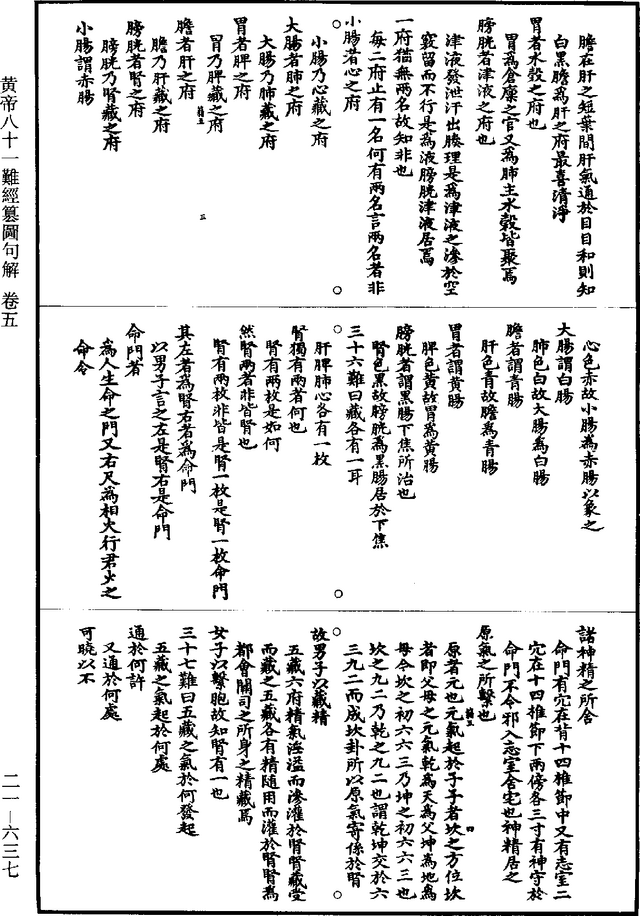 膽在肝之短葉間肝氣通於目目和則知
白黑膽爲肝之府最喜清淨
胃者水穀之府也
胃爲倉廩之官又爲肺主水穀皆聚焉
膀胱者津液之府也
津液發泄汗出腠理是爲津液之滲於空
竅留而不行是爲液膀胱津液居焉
一府猶無兩名故知非也
每二府止有一名何有兩名言兩名者非
小腸者心之府
小腸乃心藏之府
大腸者肺之府
大腸乃肺藏之府
胃者脾之府
胃乃脾藏之府
膽者肝之府
膽乃肝藏之府
膀胱者腎之府
膀胱乃腎藏之府
小腸謂赤腸
心色赤故小腸爲赤腸以象之
大腸謂白腸
肺色白故大腸爲白腸
膽者謂青腸
肝色青故膽爲青腸
胃者謂黃腸
脾色黃故胃爲黃腸
膀胱者謂黑腸下焦所治也
腎色黑故膀胱爲黑腸居於下焦
三十六難曰藏各有一耳
肝脾肺心各有一枚
腎獨有兩者何也
腎有兩枚是如何
然腎兩者非皆腎也
腎有兩枚非皆是腎一枚是腎一枚命門
其左者爲腎右者爲命門
以男子言之左是腎右是命門
命門者
爲人生命之門又右尺爲相火行君火之
命令
諸神精之所舍
命門有穴在背十四椎節中又有志室二
穴在十四椎節下兩傍各三寸有神守於
命門不令邪入志室舍宅也神精居之
原氣之所繫也
原者元也元氣起於子子者坎之方位坎
者即父母之元氣乾爲天爲父坤爲地爲
母今坎之初六六三乃坤之初六六三也
坎之九二乃乾之九二也謂乾坤交於六
三九二而成坎卦所以原氣寄係於腎
故男子以藏精
五藏六府精氣淫溢而滲灌於腎腎藏受
而藏之五藏各有精隨用而灌於腎腎爲
都會關司之所身之精藏焉
女子以繫胞故知腎有一也
三十七難曰五藏之氣於何發起
五藏之氣起於何處
通於何許
又通於何處
可曉以不
黄帝八十一難經纂圖句解 卷五
二一—六三七